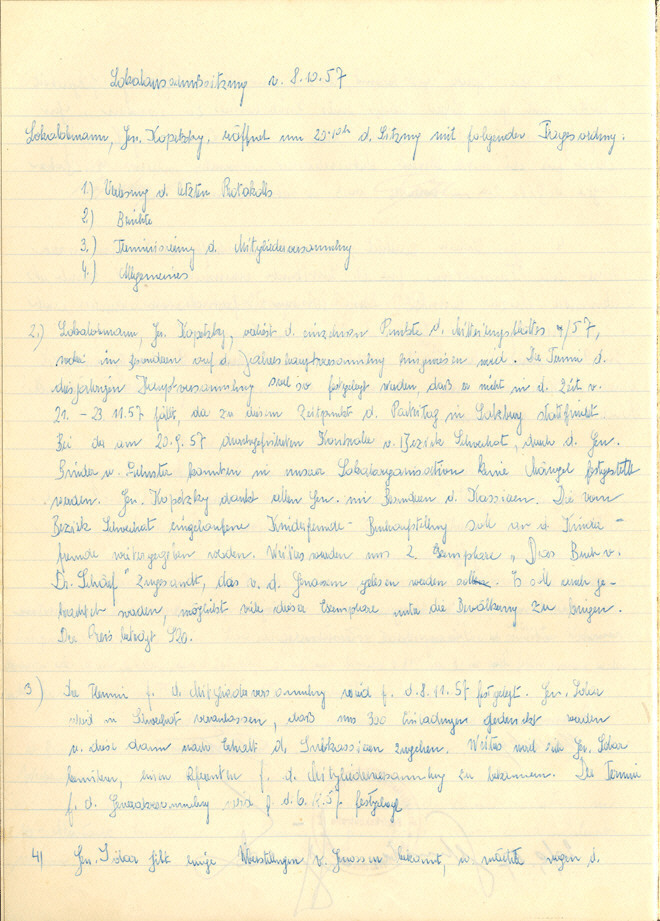 Lokalausschußsitzung v. 8.10.57
Lokalobmann, Gen. Kopetzky, eröffnet um 20.10h d. Sitzung mit folgender Tagesordnung:
1.) Verlesung d. letzten Protokolls
2.) Berichte
3.) Terminisierung d. Mitgliederversammlung
4.) Allgemeines
2.) Lokalobmann, Gen. Kopetzky, verliest d. einzelnen Punkte d. Mitteilungsblattes 9/57,
wobei im besonderen auf d. Jahreshauptversammlung hingewiesen wird. Der Termin d.
diesjährigen Hauptversammlung soll so festgelegt werden, daß er nicht in d. Zeit v.
21. – 23.11.57 fällt, da zu diesem Zeitpunkt d. Parteitag in Salzburg stattfindet.
Bei der am 20.9.57 durchgeführten Kontrolle v. Bezirk Schwechat, durch d. Gen.
v. Schuster konnten in unserer Lokalorganisation keine Mängel festgestellt
werden. Gen. Kopetzky dankt allen Gen. im Besonderen d. Kassieren. Die vom
Bezirk Schwechat eingelaufene Kinderfreunde- Buchausstellung soll an d. Kinder-
freunde weitergegeben werden. Weiters wurden uns 2 Exemplare „Das Buch v.
Dr. Schärf" zugesandt, das v. d. Genossen gelesen werden sollte. Es soll auch ge-
trachtet werden, möglichst viele dieser Exemplare unter die Bevölkerung zu bringen.
Der Preis beträgt S20.
3) Der Termin f. d. Mitgliederversammlung wird f. d. 8.11.57 festgelegt. Gen.
wird in Schwechat veranlassen, daß uns 300 Einladungen gedruckt werden
u. diese dann nach Erhalt d. Subkassieren zugehen. Weiters wird sich Gen.
bemühen, einen Referenten f. d. Mitgliederversammlung zu bekommen. Der Termin
f. d. Generalversammlung wird f. d. 6.12.57 festgelegt
4) Gen. gibt einige v. Genossen bekannt, er möchte wegen d.